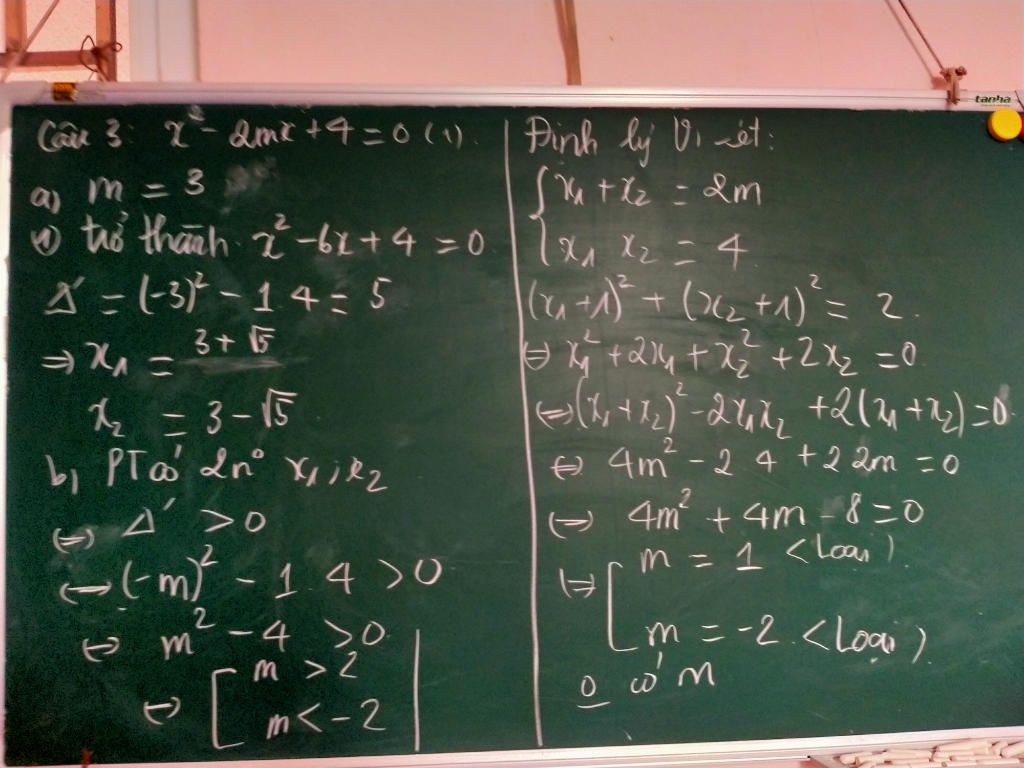 Câu 3: x² - 2mx + 4 = 0 (1)
a) m = 3
(1) trở thành: x² - 6x + 4 = 0
Δ' = (-3)² - 1 4 = 5
⇒ x₁ = 3 + √5
x₂ = 3 - √5
b) PT có 2n⁰ x₁; x₂
⇔ Δ' > 0
⇔ (-m)² - 1 4 > 0
⇔ m² - 4 > 0
⇔ [ m > 2
m < -2
Định lý Vi-ét:
{ x₁ + x₂ = 2m
x₁ x₂ = 4
(x₁ + 1)² + (x₂ + 1)² = 2
⇔ x₁² + 2x₁ + x₂² + 2x₂ = 0
⇔ (x₁ + x₂)² - 2x₁x₂ + 2(x₁ + x₂) = 0
⇔ 4m² - 2 4 + 2 2m = 0
⇔ 4m² + 4m - 8 = 0
⇔ [ m = 1 <Loại)
m = -2 <Loại)
0 có m
tanha